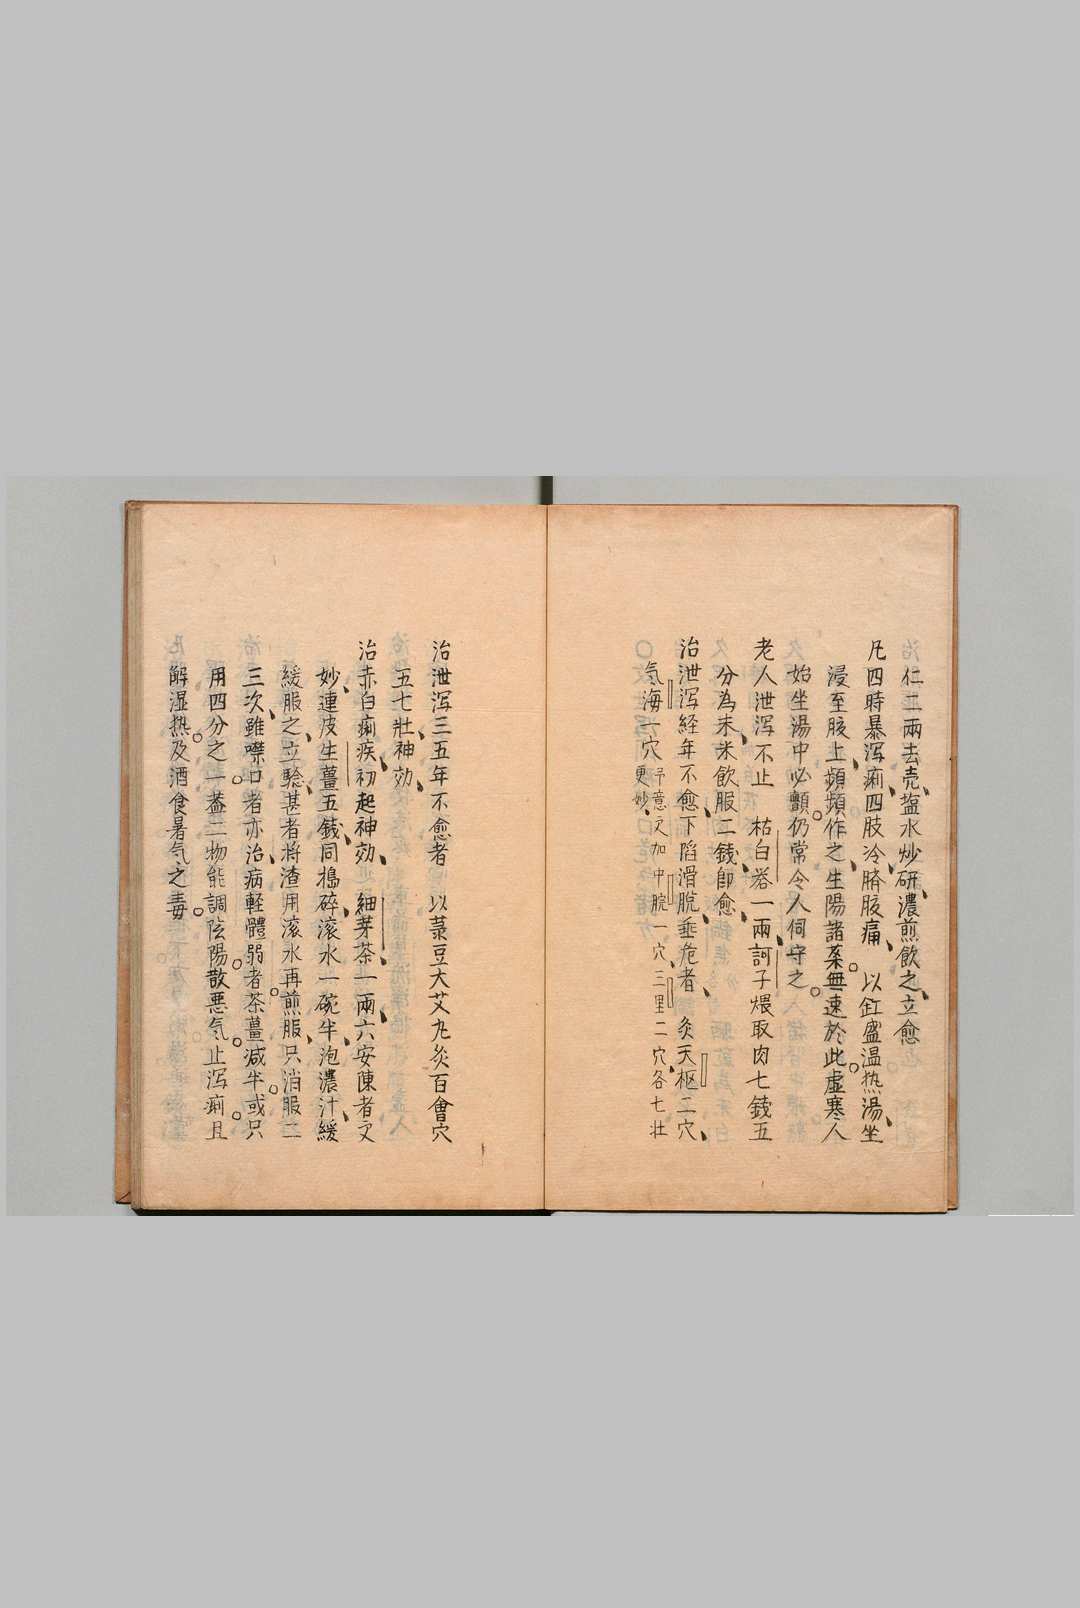 仁二兩去壳塩水炒研濃煎飲之立愈
凡四時暴泻痢四肢冷臍腹痛 以缸盛温热湯坐
浸至腹上頻頻作之生陽諸薬無速於此虚寒人
始坐湯中必顫仍常令人伺守之
老人泄泻不止 枯白礬一兩訶子煨取肉七錢五
分為末米飲服二錢即愈
治泄泻経年不愈下陷滑脫垂危者 灸天枢二穴
氣海一穴 予意又加中脘一穴三里二穴各七壮
更妙
治泄泻三五年不愈者以菉豆大艾丸灸百會穴
五七壯神効
治赤白痢疾初起神効 細芽茶一兩六安陳者又
妙連皮生薑五錢同搗碎滚水一碗半泡濃汁緩
緩服之立驗甚者将渣用滚水再煎服只消服二
三次雖噤口者亦治病軽體弱者茶薑減半或只
用四分之一葢二物能調陰陽散悪気止泻痢且
解湿热及酒食暑气之毒